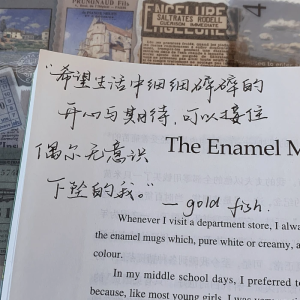 PRUNAUD FILS
4
ENGELURE
SALTRATES RODELL
"希望生活中细细碎碎的
开心与期待，可以接住
偶尔无意识
下坠的我。"
— gold fish.
The Enamel M
Whenever I visit a department store, I alwa
the enamel mugs which, pure white or creamy, a
colour.
In my middle school days, I preferred to
because, like most young girls, I was very